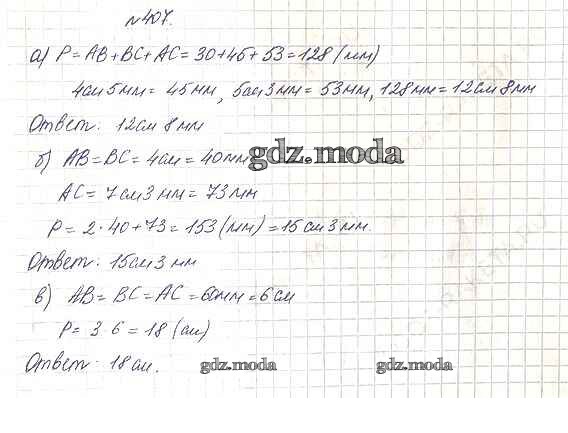 №407.
а) P = AB + BC + AC = 30 + 45 + 53 = 128 (мм)
4см 5мм = 45мм, 5см 3мм = 53мм, 128мм = 12см 8мм
Ответ: 12см 8мм
б) AB = BC = 4см = 40мм
gdz.moda
AC = 7см 3мм = 73мм
P = 2·40 + 73 = 153 (мм) = 15см 3мм.
Ответ: 15см 3мм
в) AB = BC = AC = 60мм = 6см
P = 3·6 = 18 (см)
Ответ: 18см.
gdz.moda gdz.moda